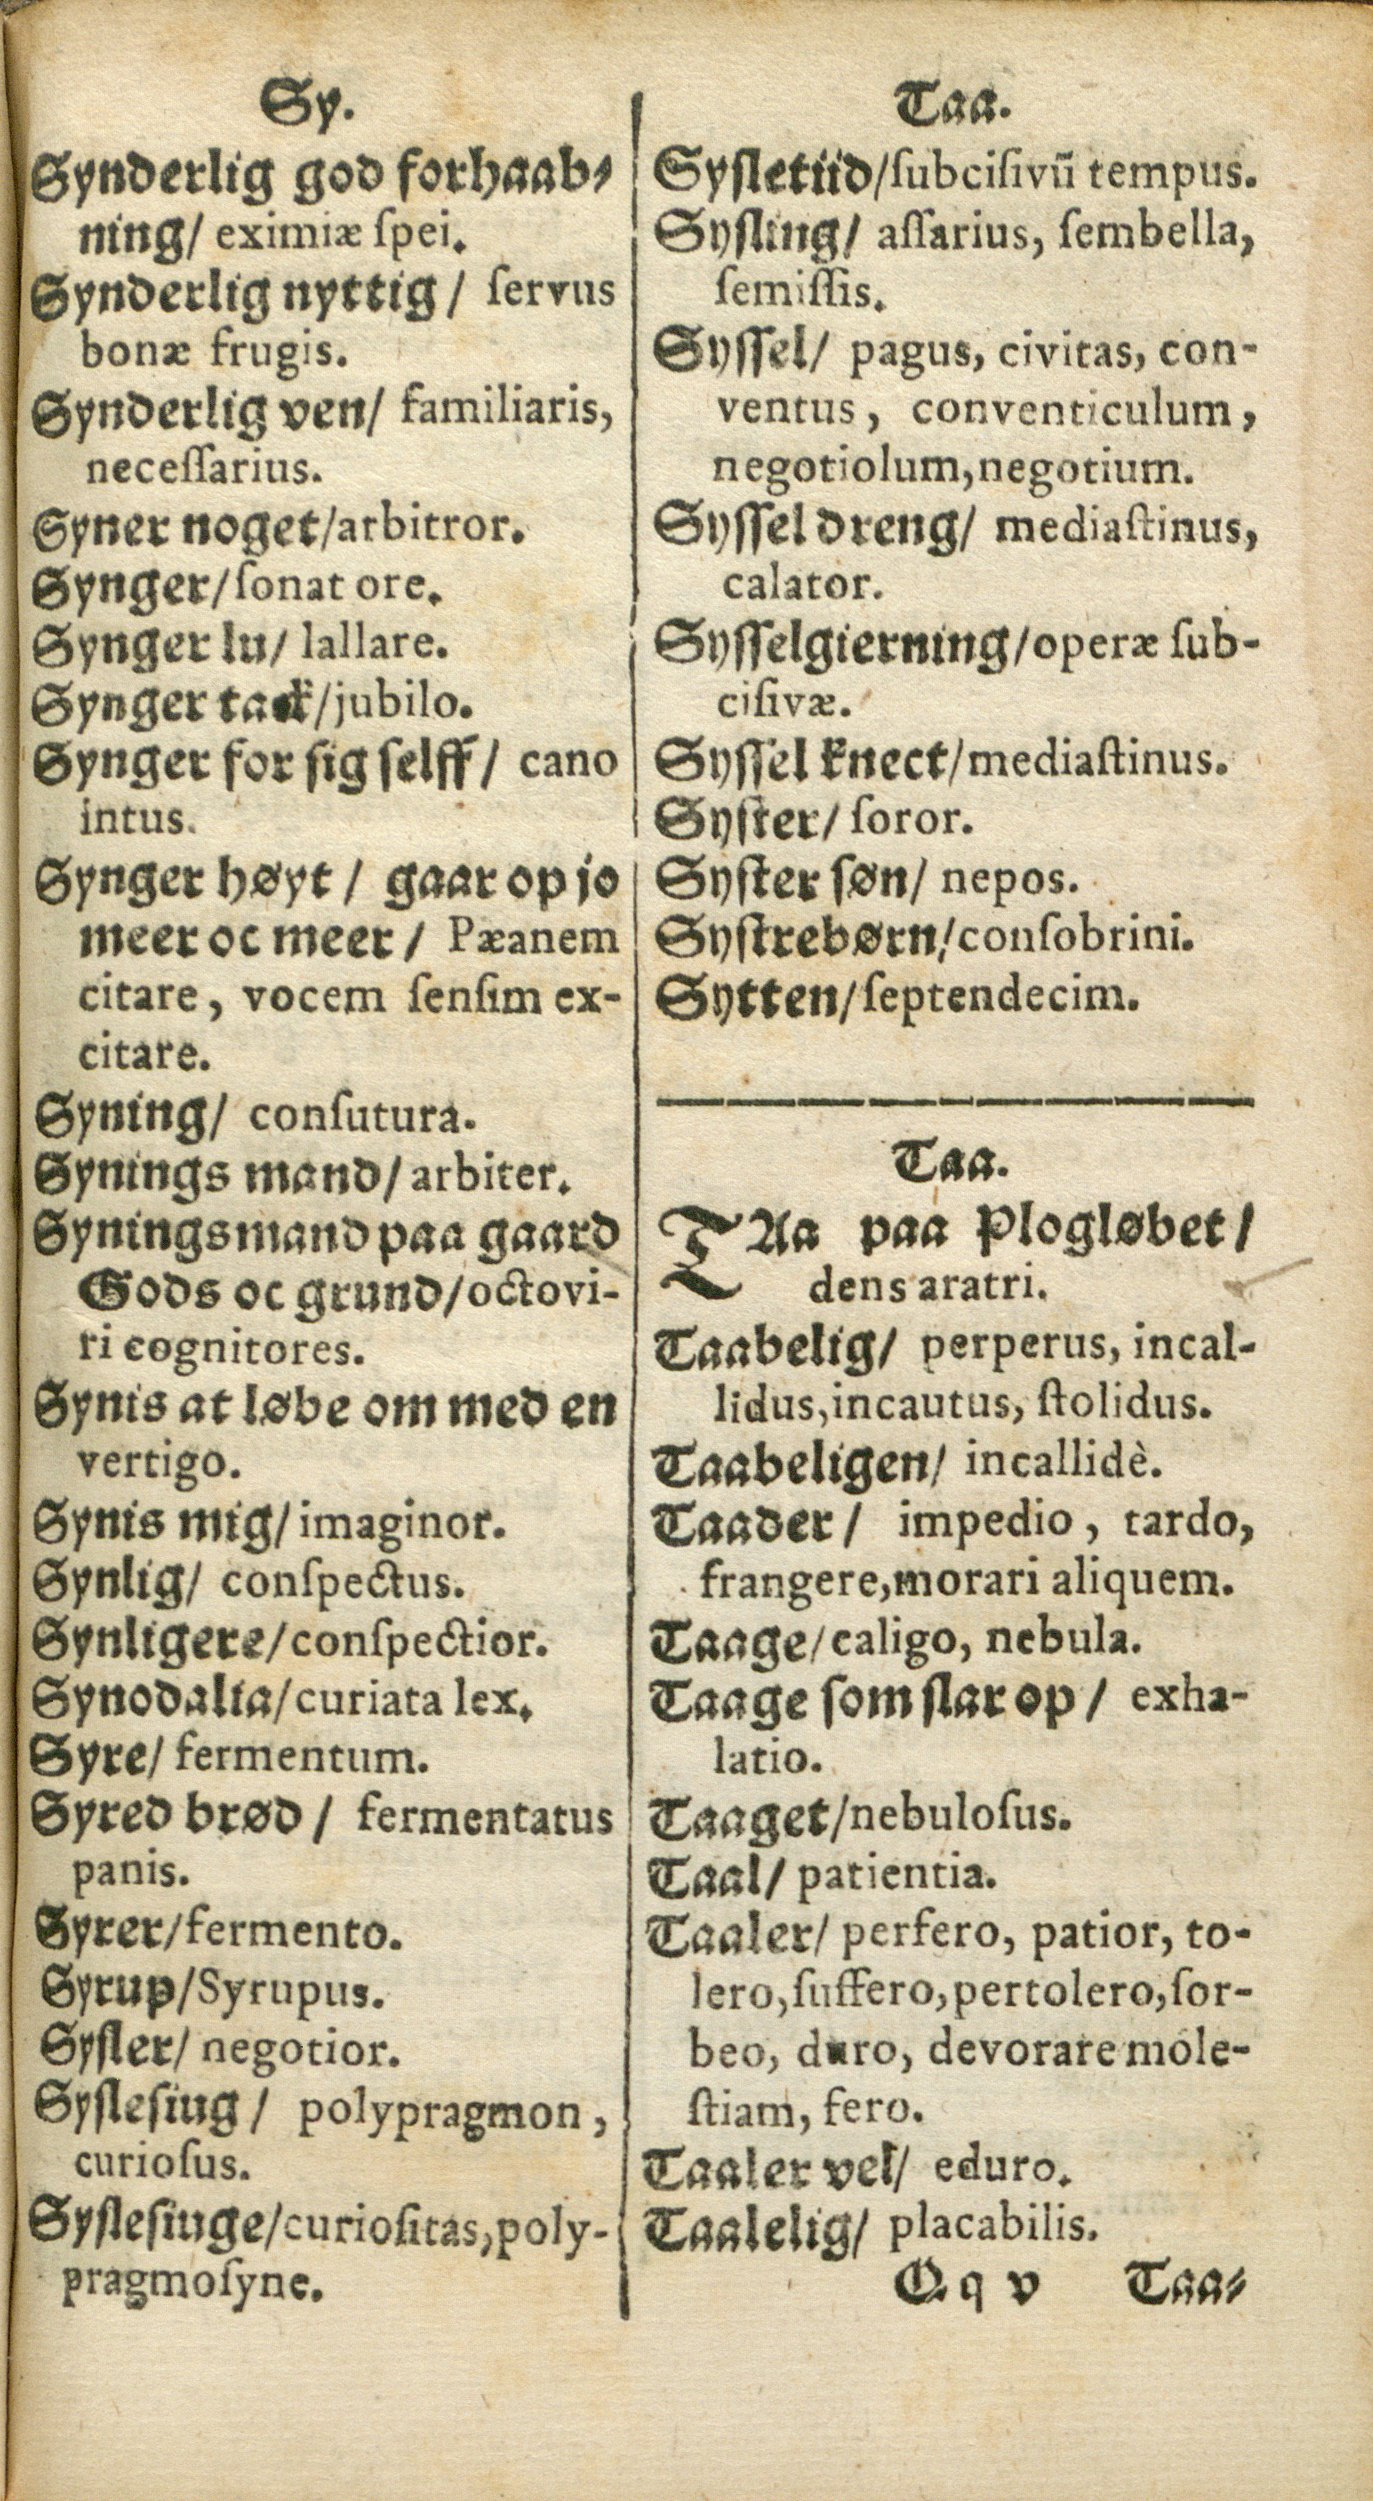 Sy.
Synderlig god forhaab⸗
ning/ eximiæ ſpei.
Synderlig nyttig/ ſervus
bonæ frugis.
Synderlig ven/ familiaris,
neceſſarius.
Syner noget/arbitror.
Synger/ſonat ore.
Synger lu/ lallare.
Synger tack/jubilo.
Synger for ſig ſelff/ cano
intus.
Synger høyt/ gaar op jo
meer oc meer/ Pæanem
citare, vocem ſenſim ex-
citare.
Syning/ conſutura.
Synings mand/arbiter.
Syningsmand paa gaard
Gods oc grund/octovi-
ri cognitores.
Synis at løbe om med en
vertigo.
Synis mig/imaginor.
Synlig/ conſpectus.
Synligere/conſpectior.
Synodalia/curiata lex.
Syre/ fermentum.
Syred brød/ fermentatus
panis.
Syrer/fermento.
Syrup/Syrupus.
Syſler/ negotior.
Syſleſiug/ polypragmon,
curioſus.
Syſleſiuge/curioſitas,poly-
pragmoſyne.
Taa.
Syſletiid/ſubciſivū tempus.
Syſling/ aſſarius, ſembella,
ſemiſſis.
Syſſel/ pagus, civitas, con-
ventus, conventiculum,
negotiolum,negotium.
Syſſel dreng/ mediaſtinus,
calator.
Syſſelgierning/operæ ſub-
ciſivæ.
Syſſel knect/mediaſtinus.
Syſter/ ſoror.
Syſter ſøn/ nepos.
Syſtrebørn/conſobrini.
Sytten/ſeptendecim.
Taa.
TAa paa Plogløbet/
dens aratri.
Taabelig/ perperus, incal-
lidus,incautus, ſtolidus.
Taabeligen/ incallidè.
Taader/ impedio, tardo,
frangere,morari aliquem.
Taage/caligo, nebula.
Taage ſom ſlar op/ exha-
latio.
Taaget/nebuloſus.
Taal/ patientia.
Taaler/ perfero, patior, to-
lero,ſuffero,pertolero,ſor-
beo, duro, devorare mole-
ſtiam, fero.
Taaler vel/ eduro.
Taalelig/ placabilis.
Q q v Taa⸗